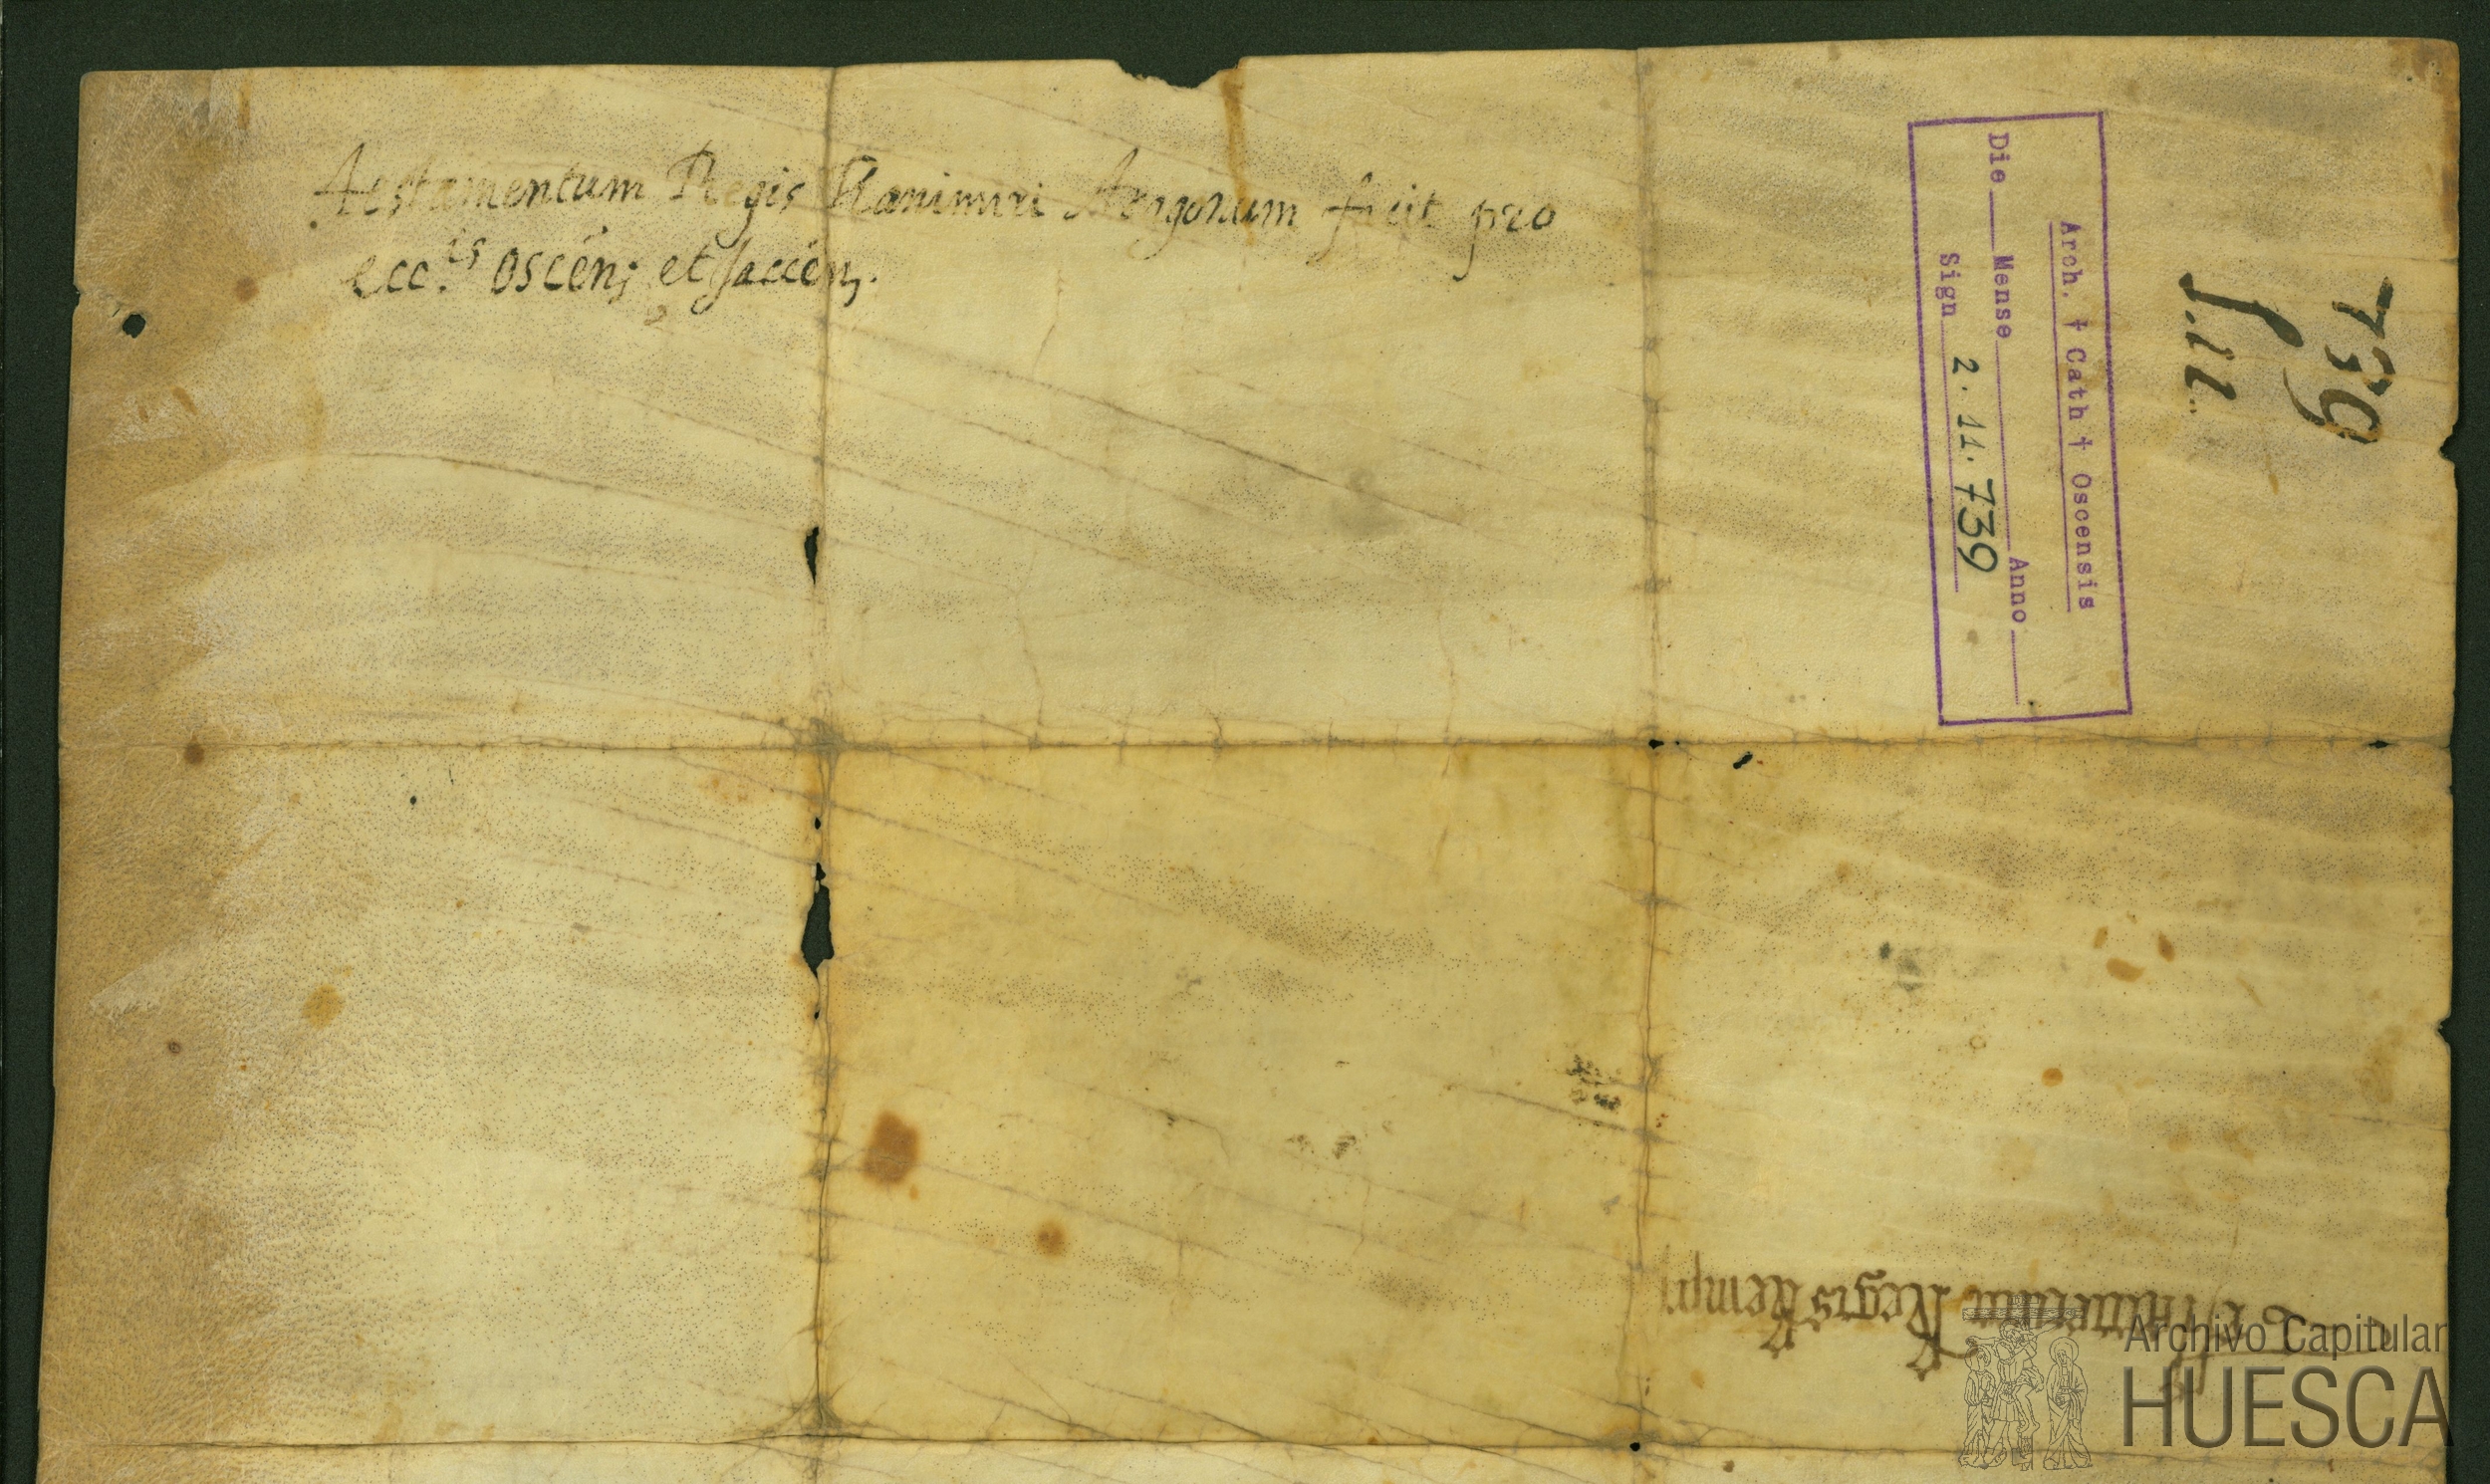 Testamentum Regis Ranimiri Aragonum facit pro
ecc.is Oscen; et Jaccen;.
Arch. † Cath † Oscensis
Die Mense Anno
Sign 2. 11. 739
739
Regis
Archivo Capitular
HUESCA